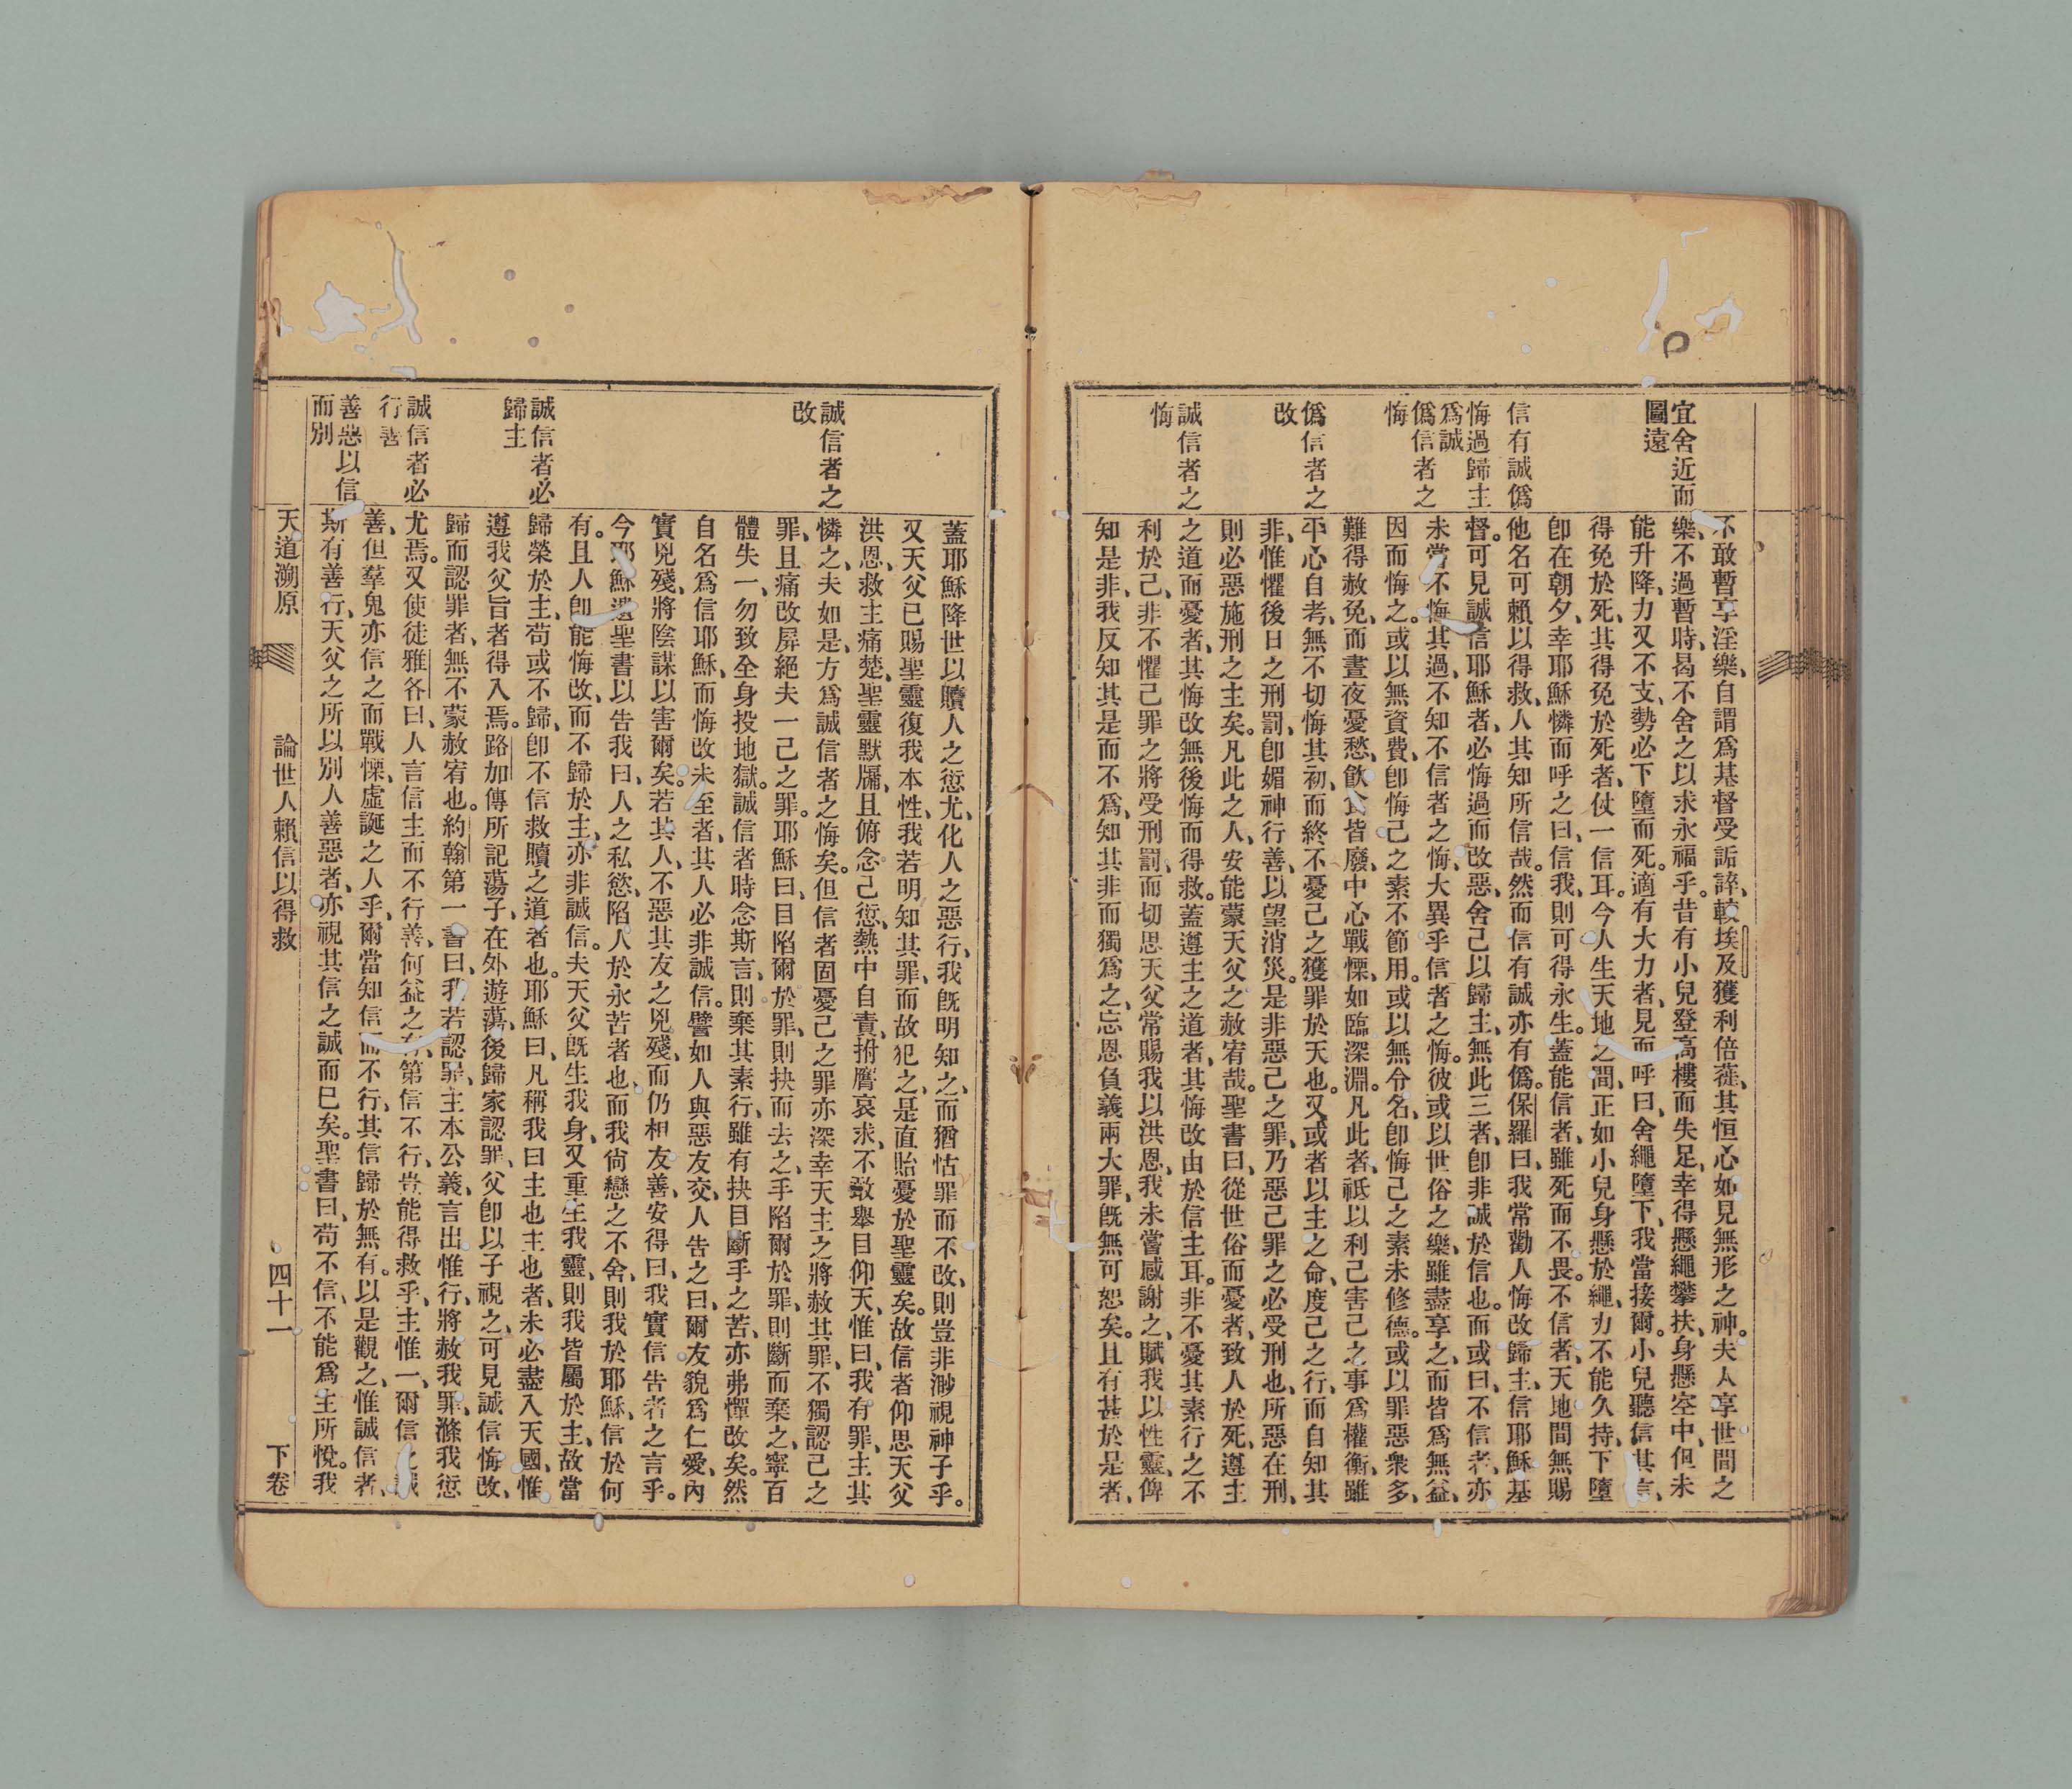 宜舍近而
圖遠
信有誠僞
悔過歸主
爲誠
僞信者之
悔
僞信者之
改
誠信者之
悔
不敢暫享淫樂、自謂爲基督受詬誶、較埃及獲利倍蓰、其恒心如見無形之神。夫人享世間之
樂、不過暫時、曷不舍之以求永福乎。昔有小兒登高樓而失足、幸得懸繩攀扶、身懸空中、但未
能升降、力又不支、勢必下墮而死。適有大力者、見而呼曰、舍繩墮下、我當接爾。小兒聽信其言、
得免於死、其得免於死者、仗一信耳。今人生天地之間、正如小兒身懸於繩、力不能久持、下墮
卽在朝夕、幸耶穌憐而呼之曰、信我、則可得永生。蓋能信者、雖死而不畏。不信者、天地間無賜
他名可賴以得救、人其知所信哉。然而信有誠亦有僞。保羅曰、我常勸人悔改歸主、信耶穌基
督。可見誠信耶穌者、必悔過而改惡、舍己以歸主、無此三者、卽非誠於信也。而或曰、不信者、亦
未嘗不悔其過、不知不信者之悔、大異乎信者之悔。彼或以世俗之樂、雖盡享之、而皆爲無益、
因而悔之。或以無資費、卽悔己之素不節用。或以無令名、卽悔己之素未修德。或以罪惡衆多、
難得赦免、而晝夜憂愁、飮食皆廢、中心戰慄、如臨深淵。凡此者、祇以利己害己之事爲權衡、雖
平心自考、無不切悔其初、而終不憂己之獲罪於天也。又或者以主之命、度己之行、而自知其
非、惟懼後日之刑罰、卽媚神行善、以望消災。是非惡己之罪、乃惡己罪之必受刑也、所惡在刑、
則必惡施刑之主矣。凡此之人、安能蒙天父之赦宥哉。聖書曰、從世俗而憂者、致人於死、遵主
之道而憂者、其悔改無後悔而得救。蓋遵主之道者、其悔改由於信主耳。非不憂其素行之不
利於己、非不懼己罪之將受刑罰、而切思天父常賜我以洪恩、我未嘗感謝之、賦我以性靈、俾
知是非、我反知其是而不爲、知其非而獨爲之、忘恩負義兩大罪、旣無可恕矣。且有甚於是者、
誠信者之
改
誠信者必
歸主
誠信者必
行善
善惡以信
而別
蓋耶穌降世以贖人之愆尤、化人之惡行、我旣明知之、而猶怙罪而不改、則豈非渺視神子乎。
又天父已賜聖靈復我本性、我若明知其罪、而故犯之、是直貽憂於聖靈矣。故信者仰思天父
洪恩、救主痛楚、聖靈默牖、且俯念己愆、熱中自責、拊膺哀求、不敢舉目仰天、惟曰、我有罪、主其
憐之、夫如是、方爲誠信者之悔矣。但信者固憂己之罪亦深、幸天主之將赦其罪、不獨認己之
罪、且痛改屏絕夫一己之罪。耶穌曰、目陷爾於罪、則抉而去之、手陷爾於罪、則斷而棄之、寧百
體失一、勿致全身投地獄。誠信者時念斯言、則棄其素行、雖有抉目斷手之苦、亦弗憚改矣。然
自名爲信耶穌、而悔改未至者、其人必非誠信。譬如人與惡友交、人告之曰、爾友貌爲仁愛、內
實兇殘、將陰謀以害爾矣。若其人、不惡其友之兇殘、而仍相友善、安得曰、我實信告者之言乎。
今耶穌遺聖書以告我曰、人之私慾、陷人於永苦者也、而我尙戀之不舍、則我於耶穌、信於何
有。且人卽能悔改、而不歸於主、亦非誠信。夫天父旣生我身、又重生我靈、則我皆屬於主、故當
歸榮於主、苟或不歸、卽不信救贖之道者也。耶穌曰、凡稱我曰主也主也者、未必盡入天國、惟
遵我父旨者得入焉。路加傳所記蕩子、在外遊蕩、後歸家認罪、父卽以子視之、可見誠信悔改、
歸而認罪者、無不蒙赦宥也。約翰第一書曰、我若認罪、主本公義、言出惟行、將赦我罪、滌我愆
尤焉。又使徒雅各曰、人言信主而不行善、何益之有、第信不行、豈能得救乎、主惟一、爾信之誠
善、但羣鬼亦信之而戰慄、虛誕之人乎、爾當知信而不行、其信歸於無有。以是觀之、惟誠信者、
斯有善行、天父之所以別人善惡者、亦視其信之誠而已矣。聖書曰、苟不信、不能爲主所悅。我
天道溯原　論世人賴信以得救　四十一　下卷